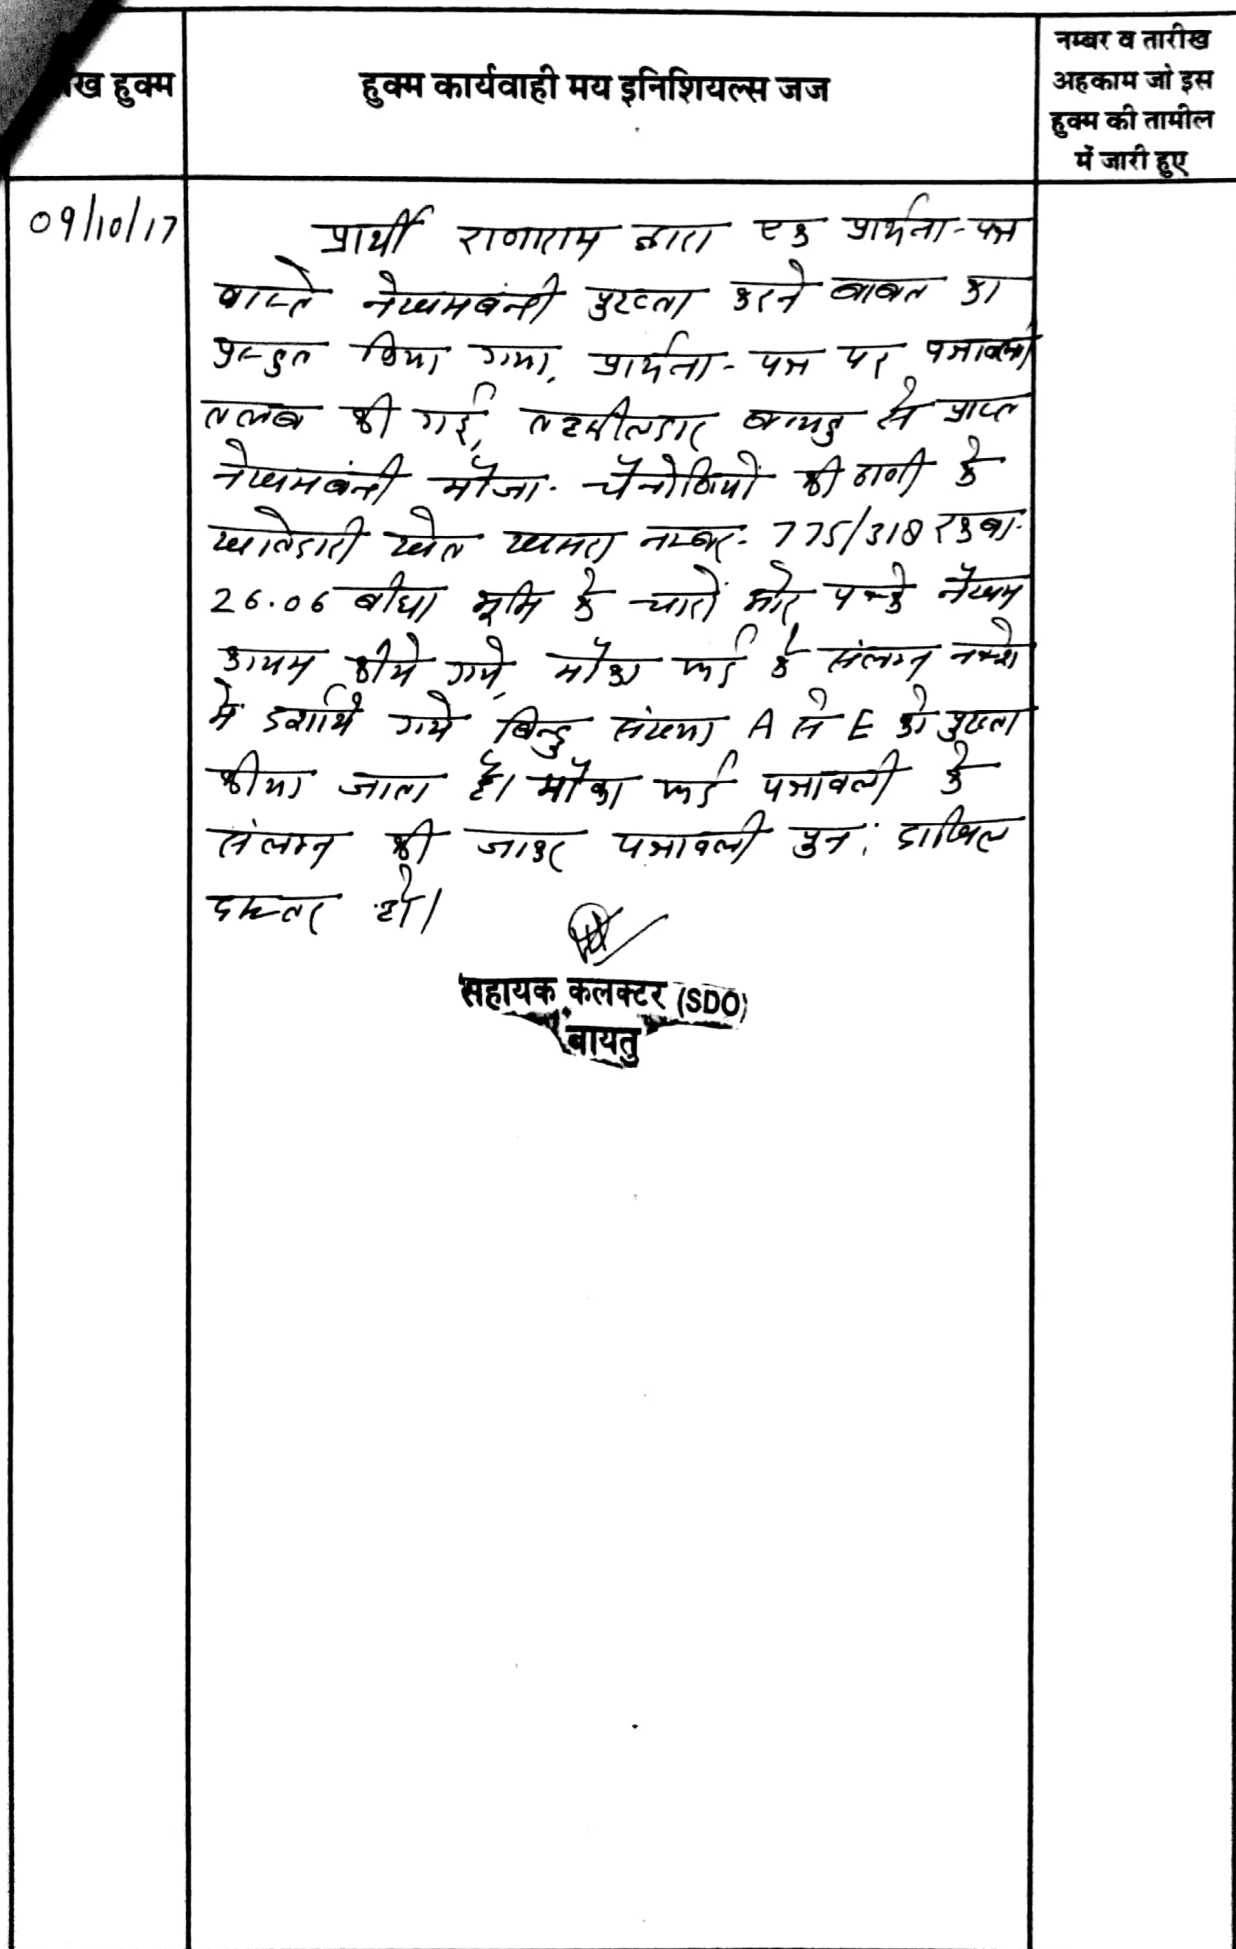 ख हुक्म
हुक्म कार्यवाही मय इनिशियल्स जज
नम्बर व तारीख
अहकाम जो इस
हुक्म की तामील
में जारी हुए
09/10/17
प्रार्थी राणाराम द्वारा एक प्रार्थना-पत्र
वास्ते नेखमबंन्दी पुख्ता करने बाबत का
प्रस्तुत किया गया, प्रार्थना-पत्र पर पत्रावली
तलब की गई, तहसीलदार बायतु से प्राप्त
नेखमबंन्दी मौजा- की ढाणी के
खातेदारी खेत खसरा नम्बर- 775/318 रकबा-
26.06 बीघा भूमि के चारों ओर पक्के नेखम
कायम कीये गये, मौका फर्द के संलग्न नक्शे
में दर्शाये गये बिन्दु संख्या A से E को पुख्ता
कीया जाता है। मौका फर्द पत्रावली के
संलग्न की जाकर पत्रावली पुन: दाखिल
दफ्तर हो।
सहायक कलक्टर (SDO)
बायतु